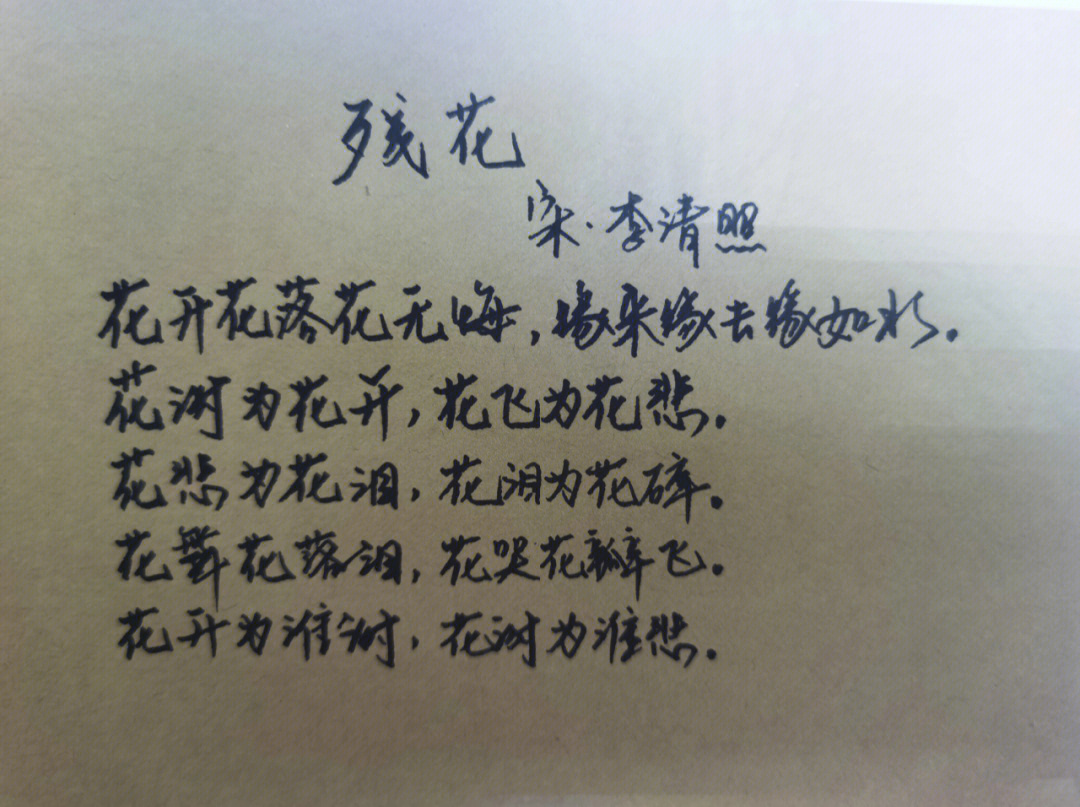 残花
宋·李清照
花开花落花无悔,缘来缘去缘如水。
花谢为花开,花飞为花悲。
花悲为花泪,花泪为花碎。
花舞花落泪,花哭花瓣飞。
花开为谁谢,花谢为谁悲。